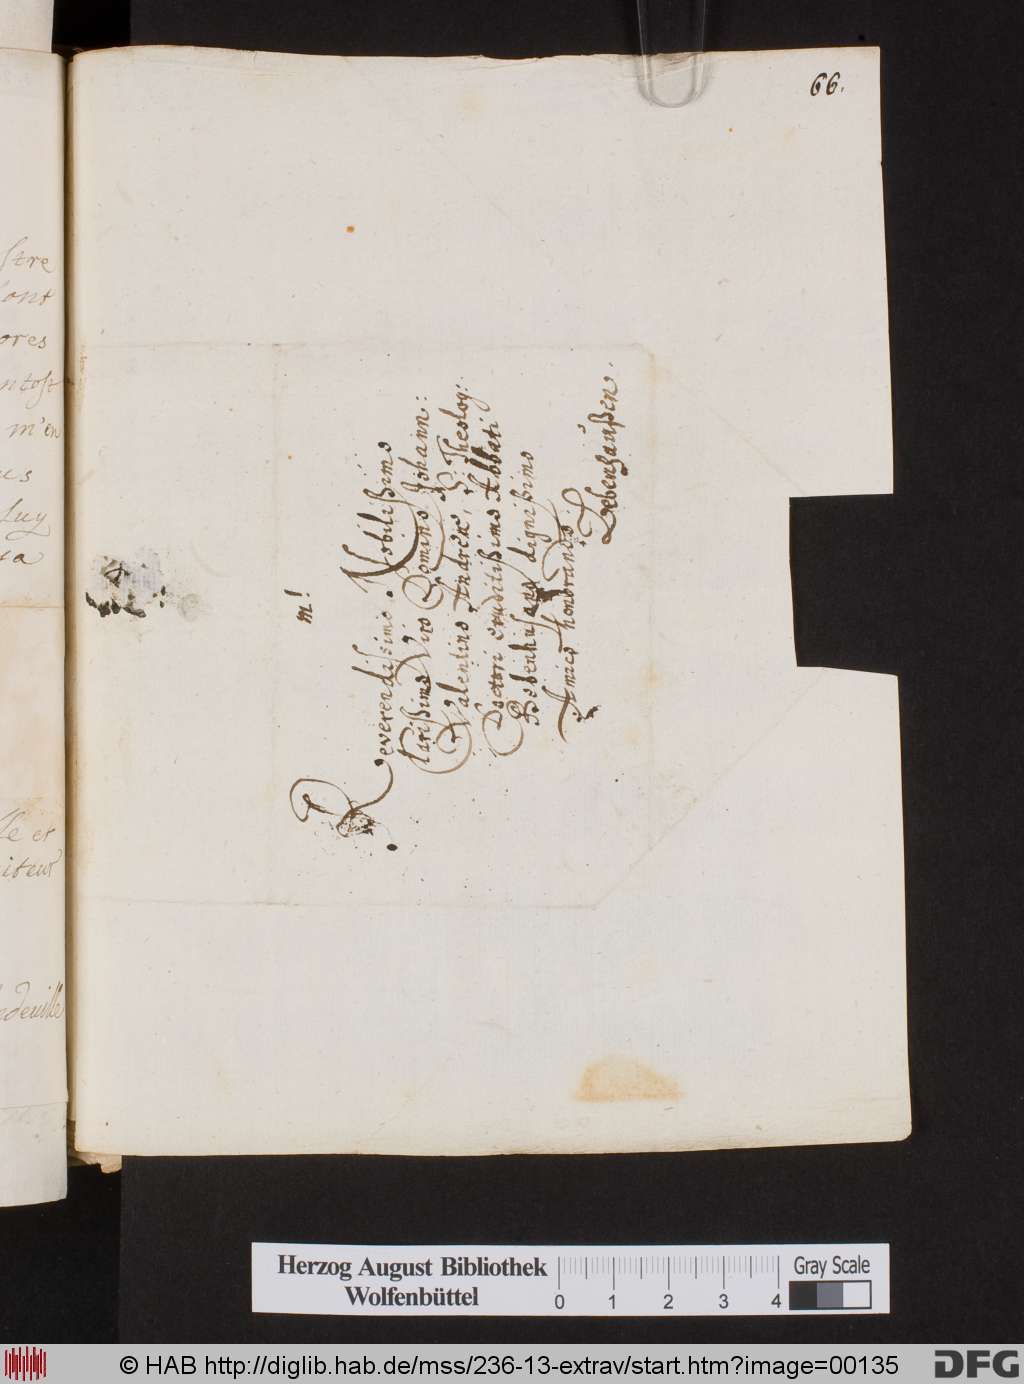 66.
stre
ont
ores
ntost
m'en
Luy
m!
Reverendissimo, Nobilissimo
Clarissimo Viro Domino Johann:
Valentino Andreæ, S. Theolog:
Doctori eruditissimo Abbati
Bebenhusano dignissimo
Amico honorando.
Bebenhaußen.
Herzog August Bibliothek
Wolfenbüttel
0 1 2 3 4
Gray Scale
© HAB http://diglib.hab.de/mss/236-13-extrav/start.htm?image=00135
DFG